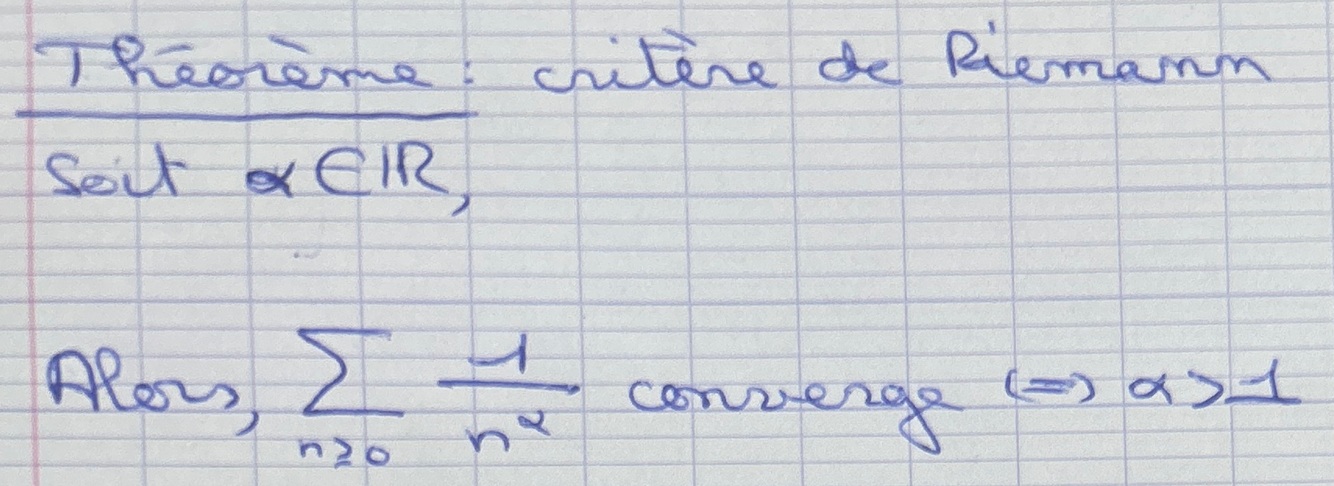 Théorème : critère de Riemann
Soit α ∈ ℝ,
Alors, ∑_{n≥0} 1/n^α converge (=) α > 1